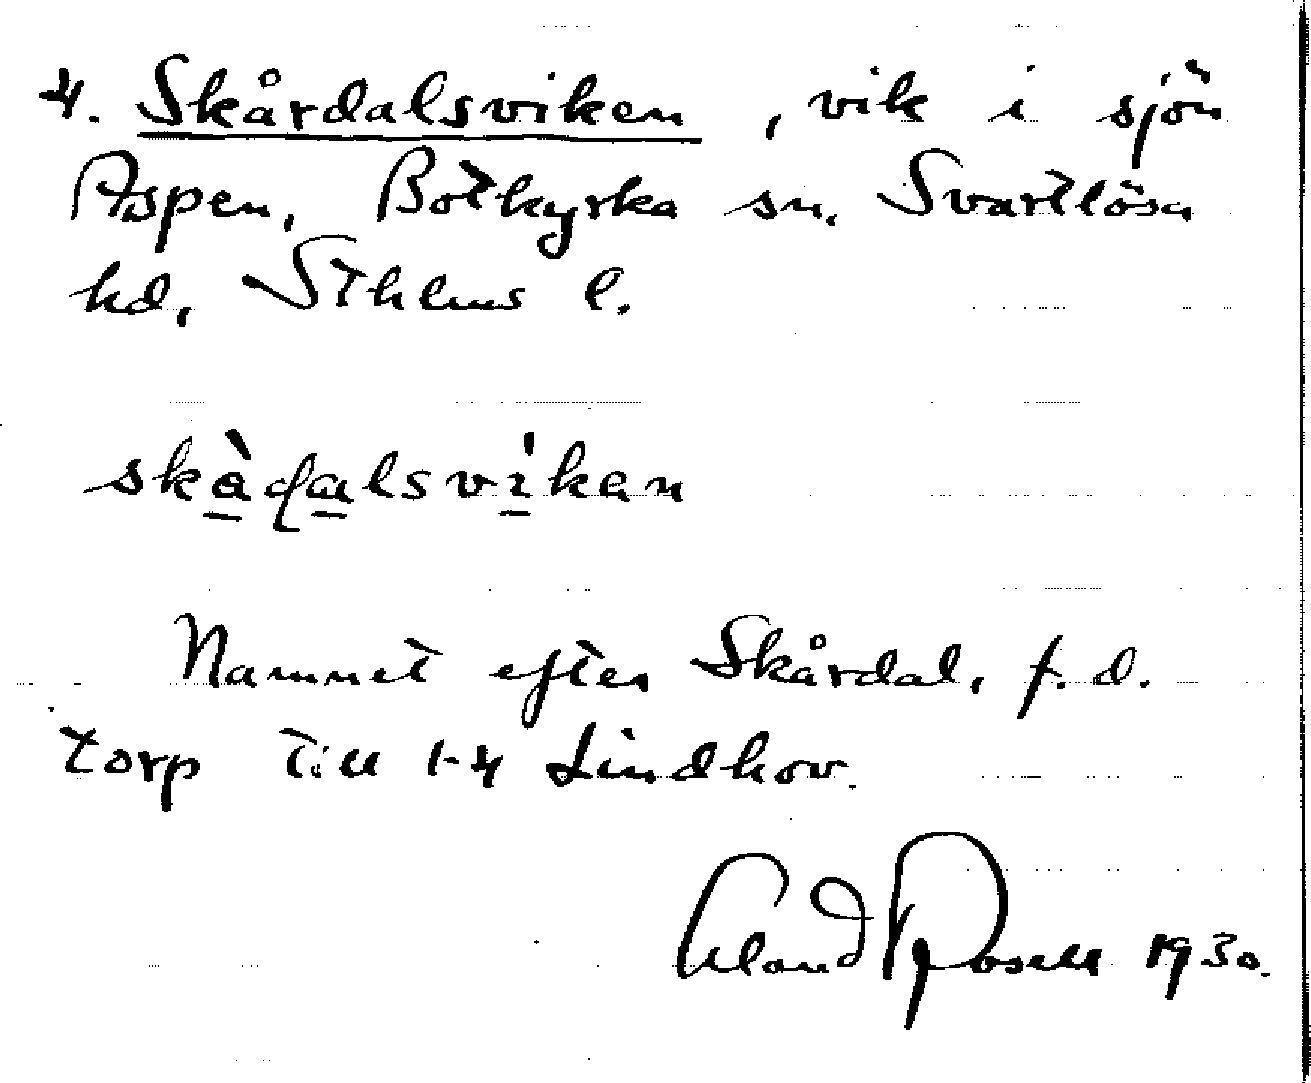 4. Skårdalsviken, vik i sjön
Aspen, Botkyrka sn, Svartlösa
hd, Sthlms l.
skådalsvikan
Namnet efter Skårdal, f.d.
torp till 1-4 Lindhov.
Erland Rosell 1930.